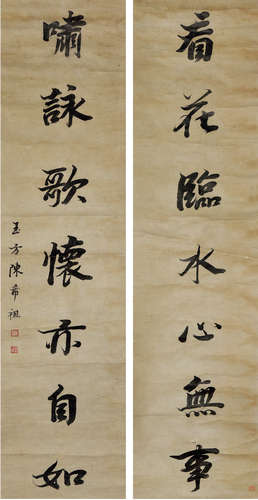 看花臨水心無事
嘯詠歌懷亦自如
玉方陳希祖